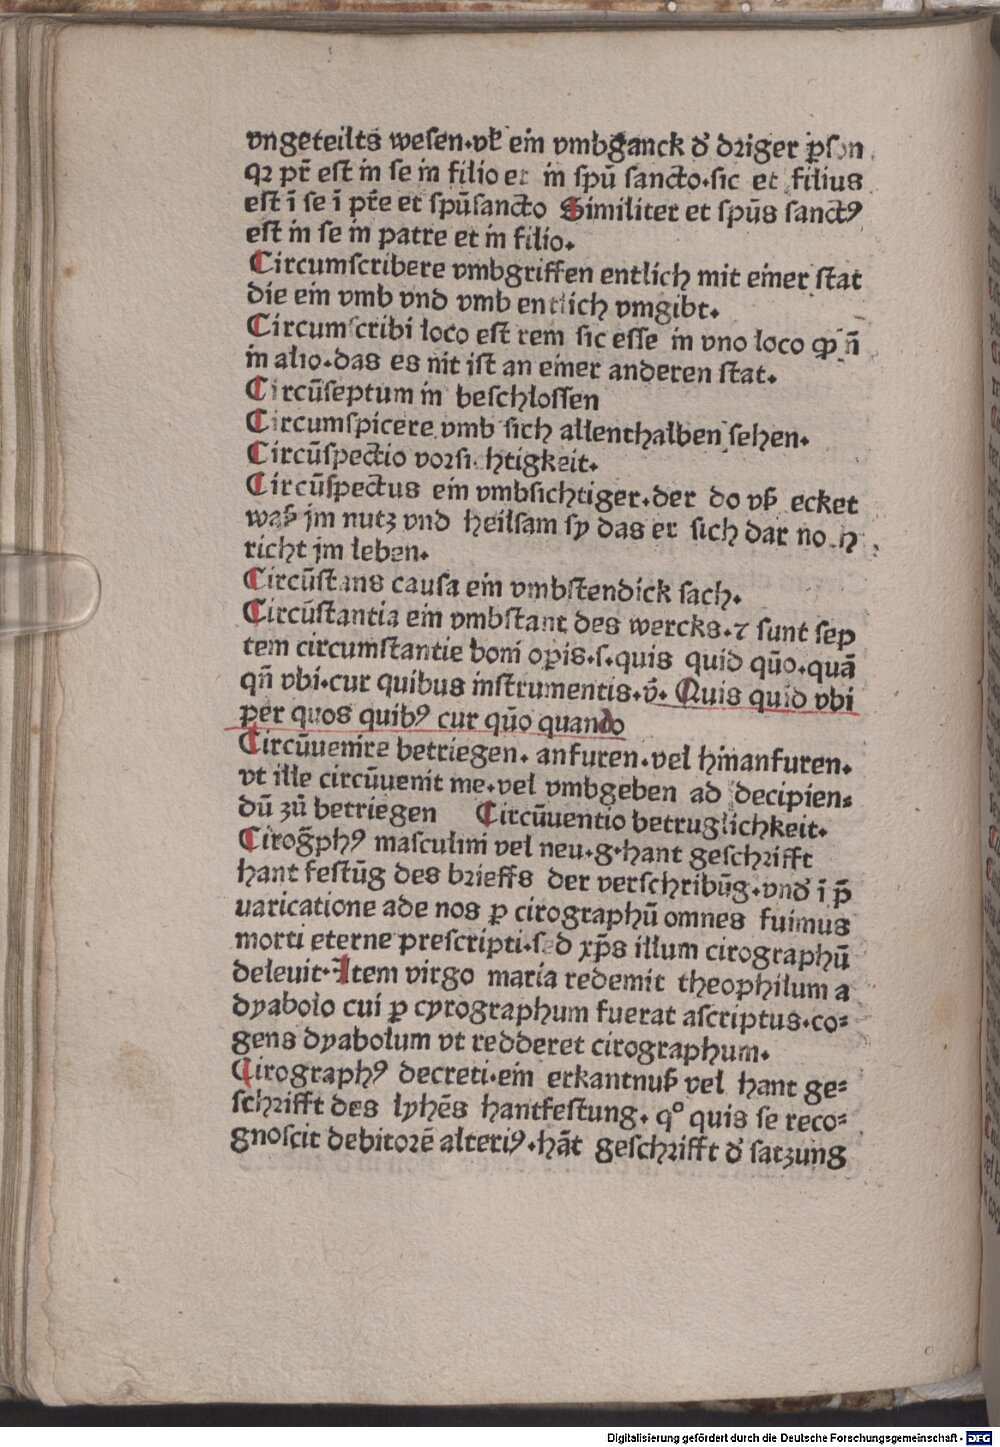 vngeteilts wesen.vł ein vmbganck ď driger ꝑson
qꝛ pr̄ est in se in filio et in spū sancto.sic et filius
est ī se ī pr̄e et spūsancto Similiter et spūs sanctꝰ
est in se in patre et in filio.
Circumscribere vmbgriffen entlich mit einer stat
die ein vmb vnd vmb entlich vmgibt.
Circumscribi loco est rem sic esse in vno loco ꝙ n̄
in alio.das es nit ist an einer anderen stat.
Circūseptum in beschlossen
Circumspicere vmb sich allenthalben sehen.
Circūspectio vorsichtigkeit.
Circūspectus ein vmbsichtiger.der do vß ecket
waß jm nutz vnd heilsam sy das er sich dar noch
richt jm leben.
Circūstans causa ein vmbstendick sach.
Circūstantia ein vmbstant des wercks.⁊ sunt sep
tem circumstantie boni oꝑis.s.quis quid qūo.quā
qn̄ vbi.cur quibus instrumentis.v̄. Quis quid vbi
per quos quibꝰ cur qūo quando
Circūuenire betriegen. anfuren.vel hinanfuren.
vt ille circūuenit me.vel vmbgeben ad decipien⸗
dū zū betriegen Circūuentio betruglichkeit.
Cirog̃phꝰ masculini vel neu.g.hant geschrifft
hant festūg des brieffs der verschribūg.vnď ī p̄
uaricatione ade nos ꝑ cirographū omnes fuimus
morti eterne prescripti.sed xp̄s illum cirographū
deleuit.Item virgo maria redemit theophilum a
dyabolo cui ꝑ cyrographum fuerat ascriptus.co⸗
gens dyabolum vt redderet cirographum.
Cirographꝰ decreti.ein erkantnuß vel hant ge⸗
schrifft des lyhēs hantfestung. qͦ quis se reco⸗
gnoscit debitorē alteriꝰ.hāt geschrifft ď satzung
Digitalisierung gefördert durch die Deutsche Forschungsgemeinschaft - DFG